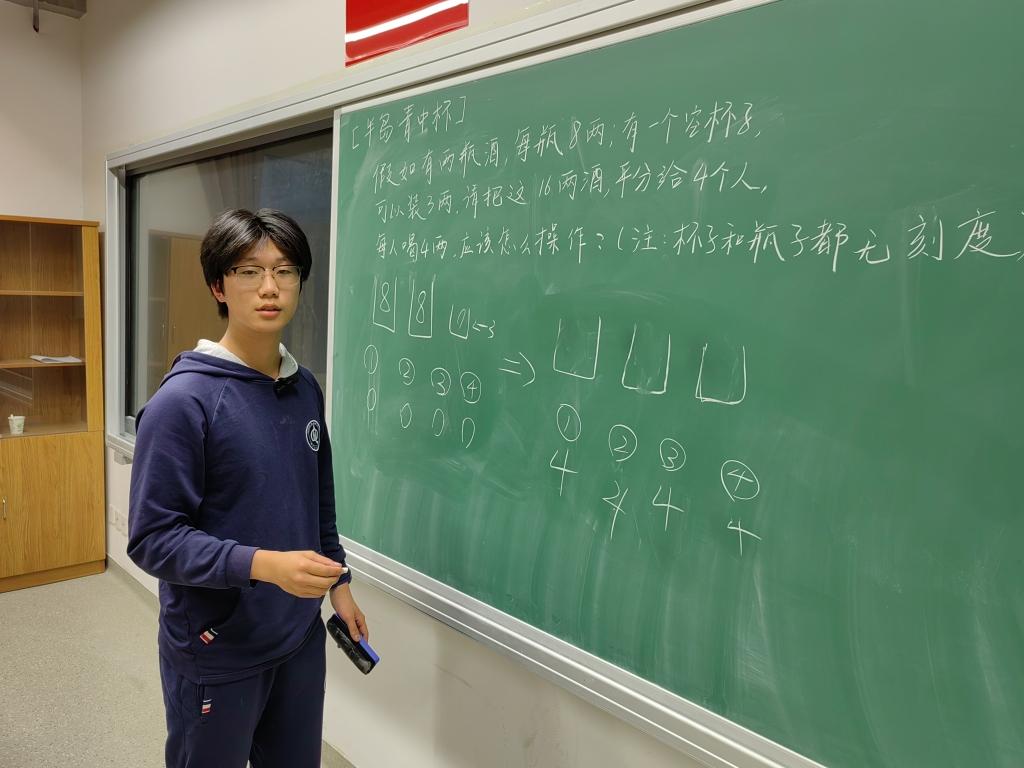 [半岛青中杯]
假如有两瓶酒,每瓶8两;有一个空杯子,
可以装3两,请把这16两酒,平分给4个人,
每人喝4两,应该怎么操作?(注:杯子和瓶子都无刻度)
8 8 0 ←3
② ③ ④ ⇒ ① ② ③ ④
0 0 0 0
4 4 4 4